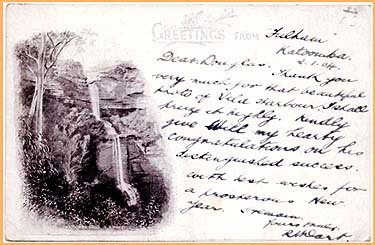 GREETINGS FROM
Fulham
Katoomba.
2.1.04.
Dear Douglas. Thank you
very much for that beautiful
photo of harbour. I shall
prize it highly. Kindly
give Will my hearty
congratulations on his
distinguished success.
With best wishes for
a prosperous New
Year. I remain.
Yours truly.